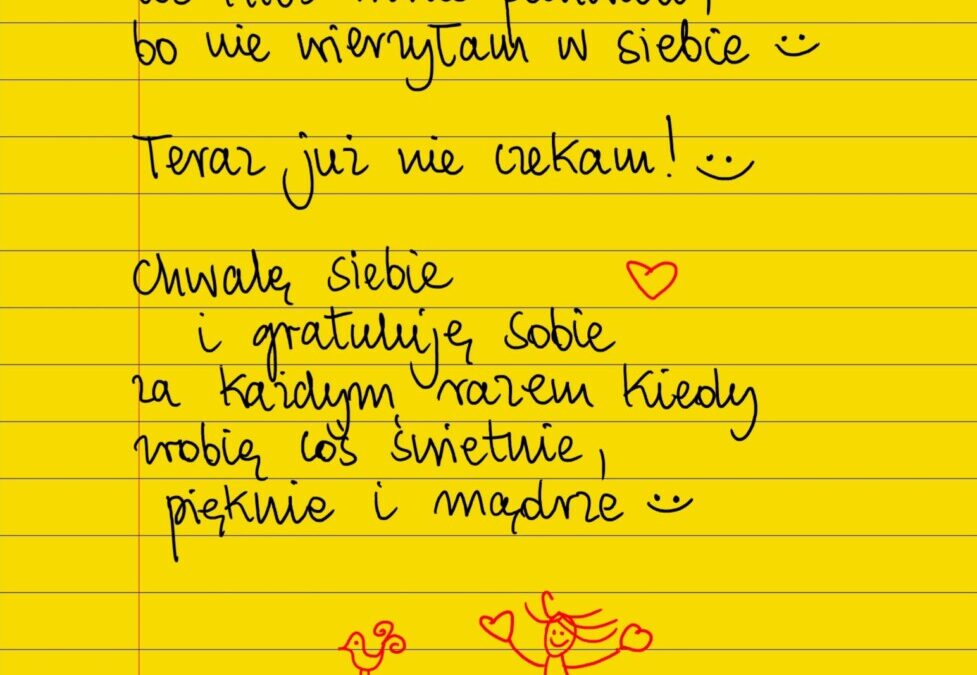 bo nie wierzyłam w siebie
Teraz już nie czekam!
Chwalę siebie
i gratuluję sobie
za każdym razem kiedy
robię coś świetnie,
pięknie i mądrze